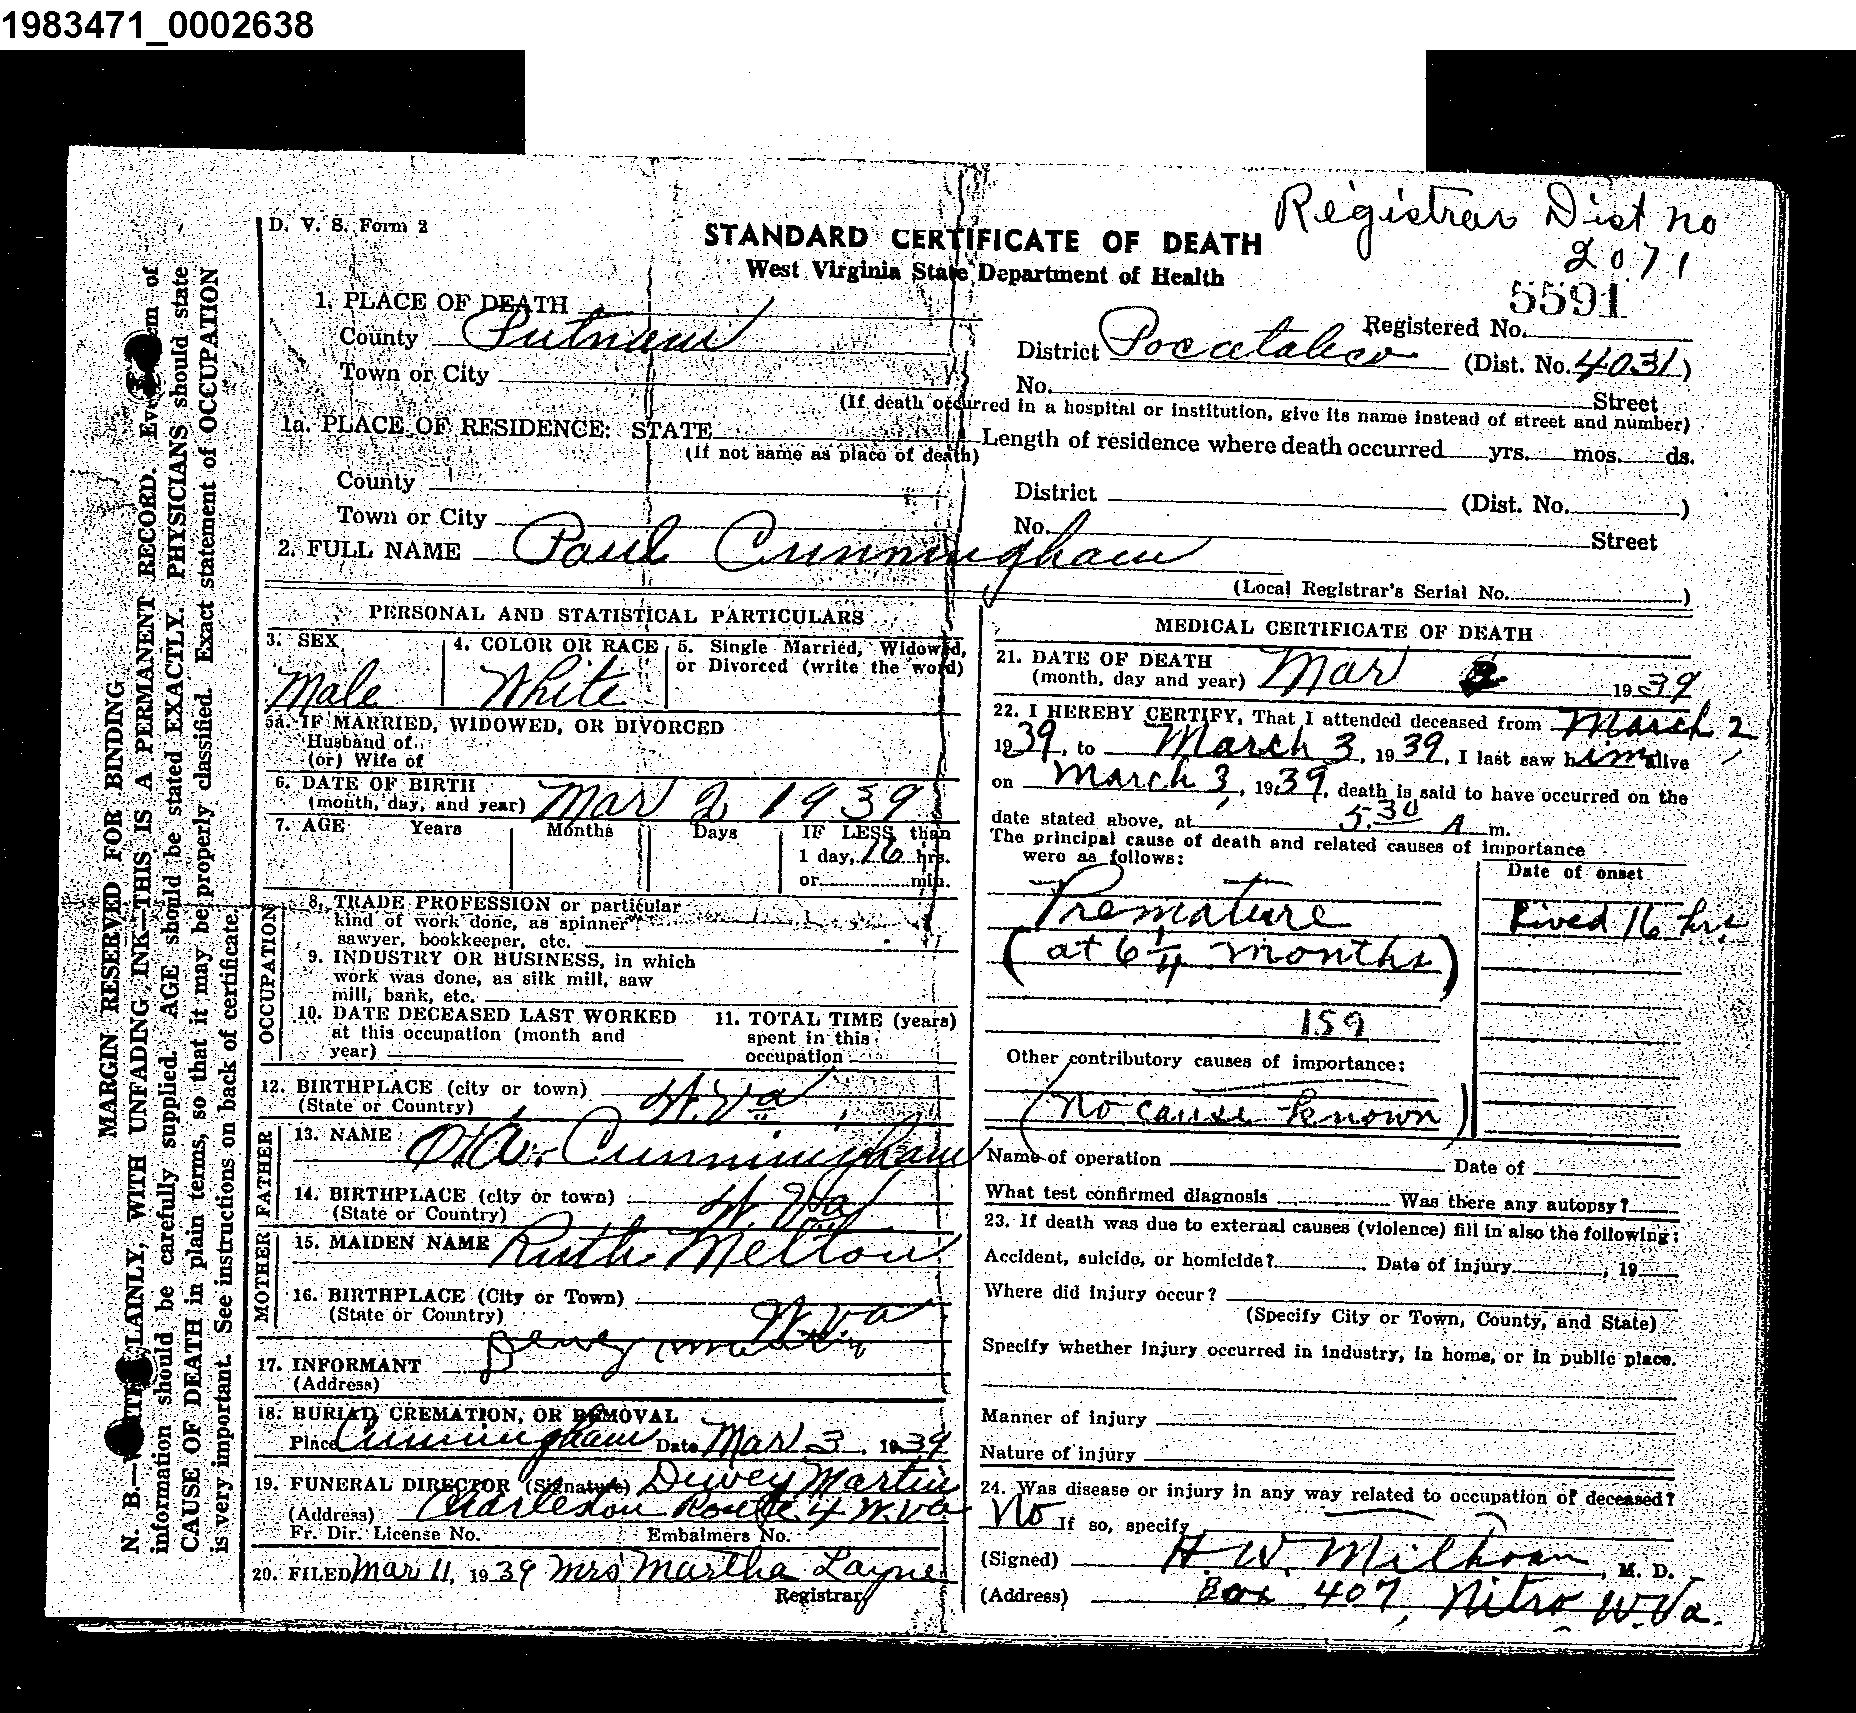 1983471_0002638
Registrar Dist no
2071
D. V. S. Form 2
STANDARD CERTIFICATE OF DEATH
West Virginia State Department of Health
5591
1. PLACE OF DEATH
Registered No.
County Putnam
District Pocatalico (Dist. No. 4031)
Town or City
No. Street
(If death occurred in a hospital or institution, give its name instead of street and number)
1a. PLACE OF RESIDENCE: STATE
(If not same as place of death)
Length of residence where death occurred yrs. mos. ds.
County
District (Dist. No. )
Town or City
No. Street
2. FULL NAME Paul Cunningham
(Local Registrar's Serial No. )
PERSONAL AND STATISTICAL PARTICULARS
3. SEX
Male
4. COLOR OR RACE
White
5. Single Married, Widowed,
or Divorced (write the word)
5a. IF MARRIED, WIDOWED, OR DIVORCED
Husband of
(or) Wife of
6. DATE OF BIRTH
(month, day, and year) Mar 2 1939
7. AGE Years Months Days IF LESS than
1 day, 16 hrs.
or min.
OCCUPATION
8. TRADE PROFESSION or particular
kind of work done, as spinner
sawyer, bookkeeper, etc.
9. INDUSTRY OR BUSINESS, in which
work was done, as silk mill, saw
mill, bank, etc.
10. DATE DECEASED LAST WORKED
at this occupation (month and
year)
11. TOTAL TIME (years)
spent in this
occupation
12. BIRTHPLACE (city or town)
(State or Country) W. Va
FATHER
13. NAME Cunningham
14. BIRTHPLACE (city or town)
(State or Country) W. Va
MOTHER
15. MAIDEN NAME Ruth Melton
16. BIRTHPLACE (City or Town)
(State or Country) W. Va
17. INFORMANT
(Address)
18. BURIAL, CREMATION, OR REMOVAL
Place Cunningham Date Mar 3, 1939
19. FUNERAL DIRECTOR (Signature) Dewey Martin
(Address) Charleston Route 4 W. Va
Fr. Dir. License No. Embalmers No.
20. FILED Mar 11, 1939 Mrs Martha Layne
Registrar
MEDICAL CERTIFICATE OF DEATH
21. DATE OF DEATH
(month, day and year) Mar 1939
22. I HEREBY CERTIFY, That I attended deceased from March 2,
1939, to March 3, 1939, I last saw him alive
on March 3, 1939, death is said to have occurred on the
date stated above, at 5:30 A m.
The principal cause of death and related causes of importance
were as follows:
Date of onset
Premature
Lived 16 hrs
(at 6 1/4 months)
159
Other contributory causes of importance:
(No cause known)
Name of operation Date of
What test confirmed diagnosis Was there any autopsy?
23. If death was due to external causes (violence) fill in also the following:
Accident, suicide, or homicide? Date of injury , 19
Where did injury occur?
(Specify City or Town, County, and State)
Specify whether injury occurred in industry, in home, or in public place.
Manner of injury
Nature of injury
24. Was disease or injury in any way related to occupation of deceased?
No If so, specify
(Signed) H. W. Milhoan, M. D.
(Address) Box 407, Nitro W. Va.
MARGIN RESERVED FOR BINDING
N. B.— PLAINLY, WITH UNFADING INK—THIS IS A PERMANENT RECORD. Every item of
information should be carefully supplied. AGE should be stated EXACTLY. PHYSICIANS should state
CAUSE OF DEATH in plain terms, so that it may be properly classified. Exact statement of OCCUPATION
is very important. See instructions on back of certificate.